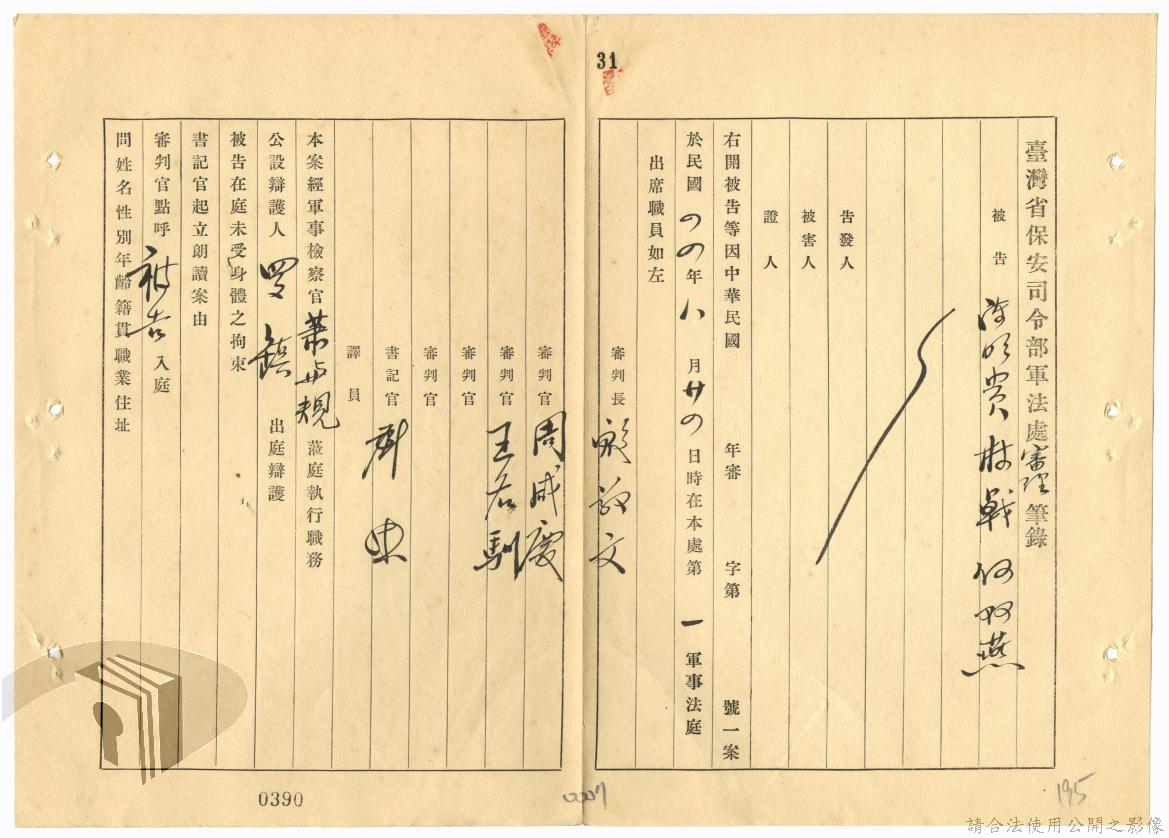 31
臺灣省保安司令部軍法處審理筆錄
被告 陳明貴 林戰 何
燕
告發人
被害人
證人
右開被告等因中華民國 年審 字第 號一案
於民國四四年八月廿四日時在本處第一軍事法庭
出席職員如左
審判長 殷敬文
審判官 周咸慶
審判官 王名馴
審判官
審判官
書記官
譯員
本案經軍事檢察官蕭与規蒞庭執行職務
公設辯護人 鎮 出庭辯護
被告在庭未受身體之拘束
書記官起立朗讀案由
審判官點呼被告入庭
問姓名性別年齡籍貫職業住址
0390
0007
195
請合法使用公開之影像